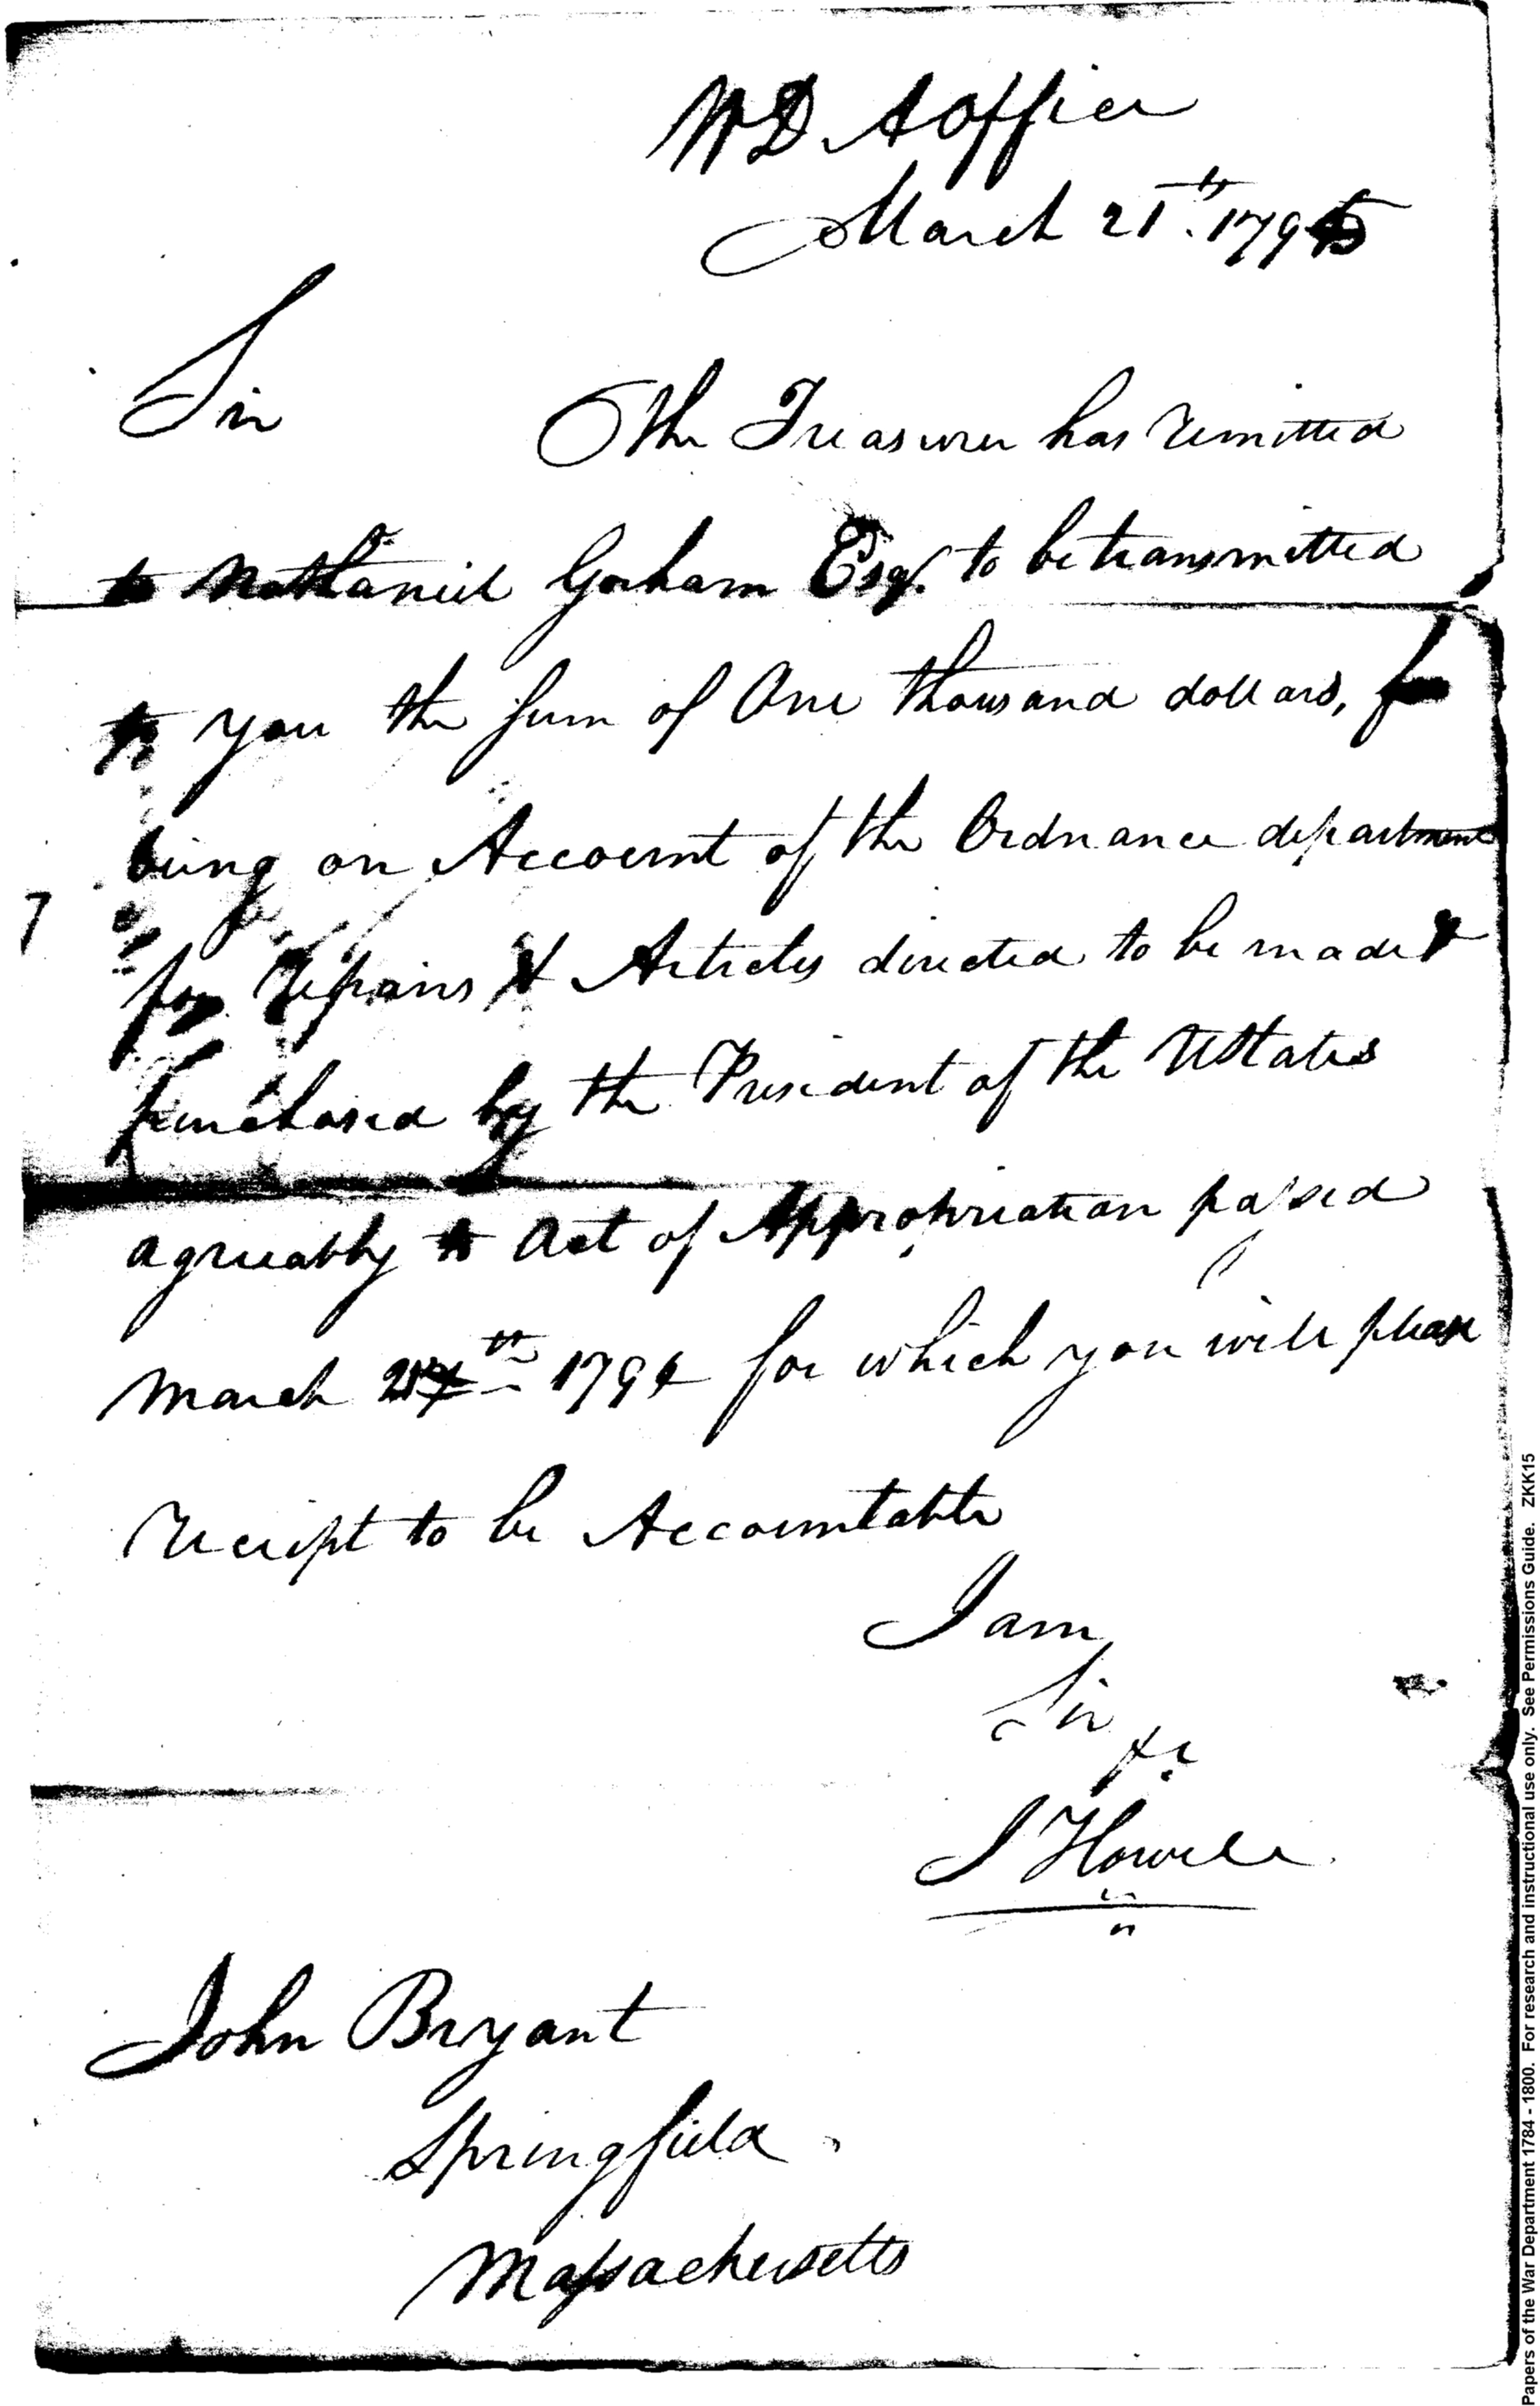 WD A Office
March 21th. 1795
Sir The Treasurer has remitted
to Nathaniel Gorham Esqr. to be transmitted
to you the sum of One thousand dollars,
being on Account of the Ordnance department
7
for repairs & Articles directed to be made &
purchased by the President of the UStates
agreeably to Act of Appropriation passed
March th 1794 for which you will please
receipt to be Accountable
I am
Sir
&c
J Howell
John Bryant
Springfield
Massachusetts
Papers of the War Department 1784 - 1800. For research and instructional use only. See Permissions Guide. ZKK15